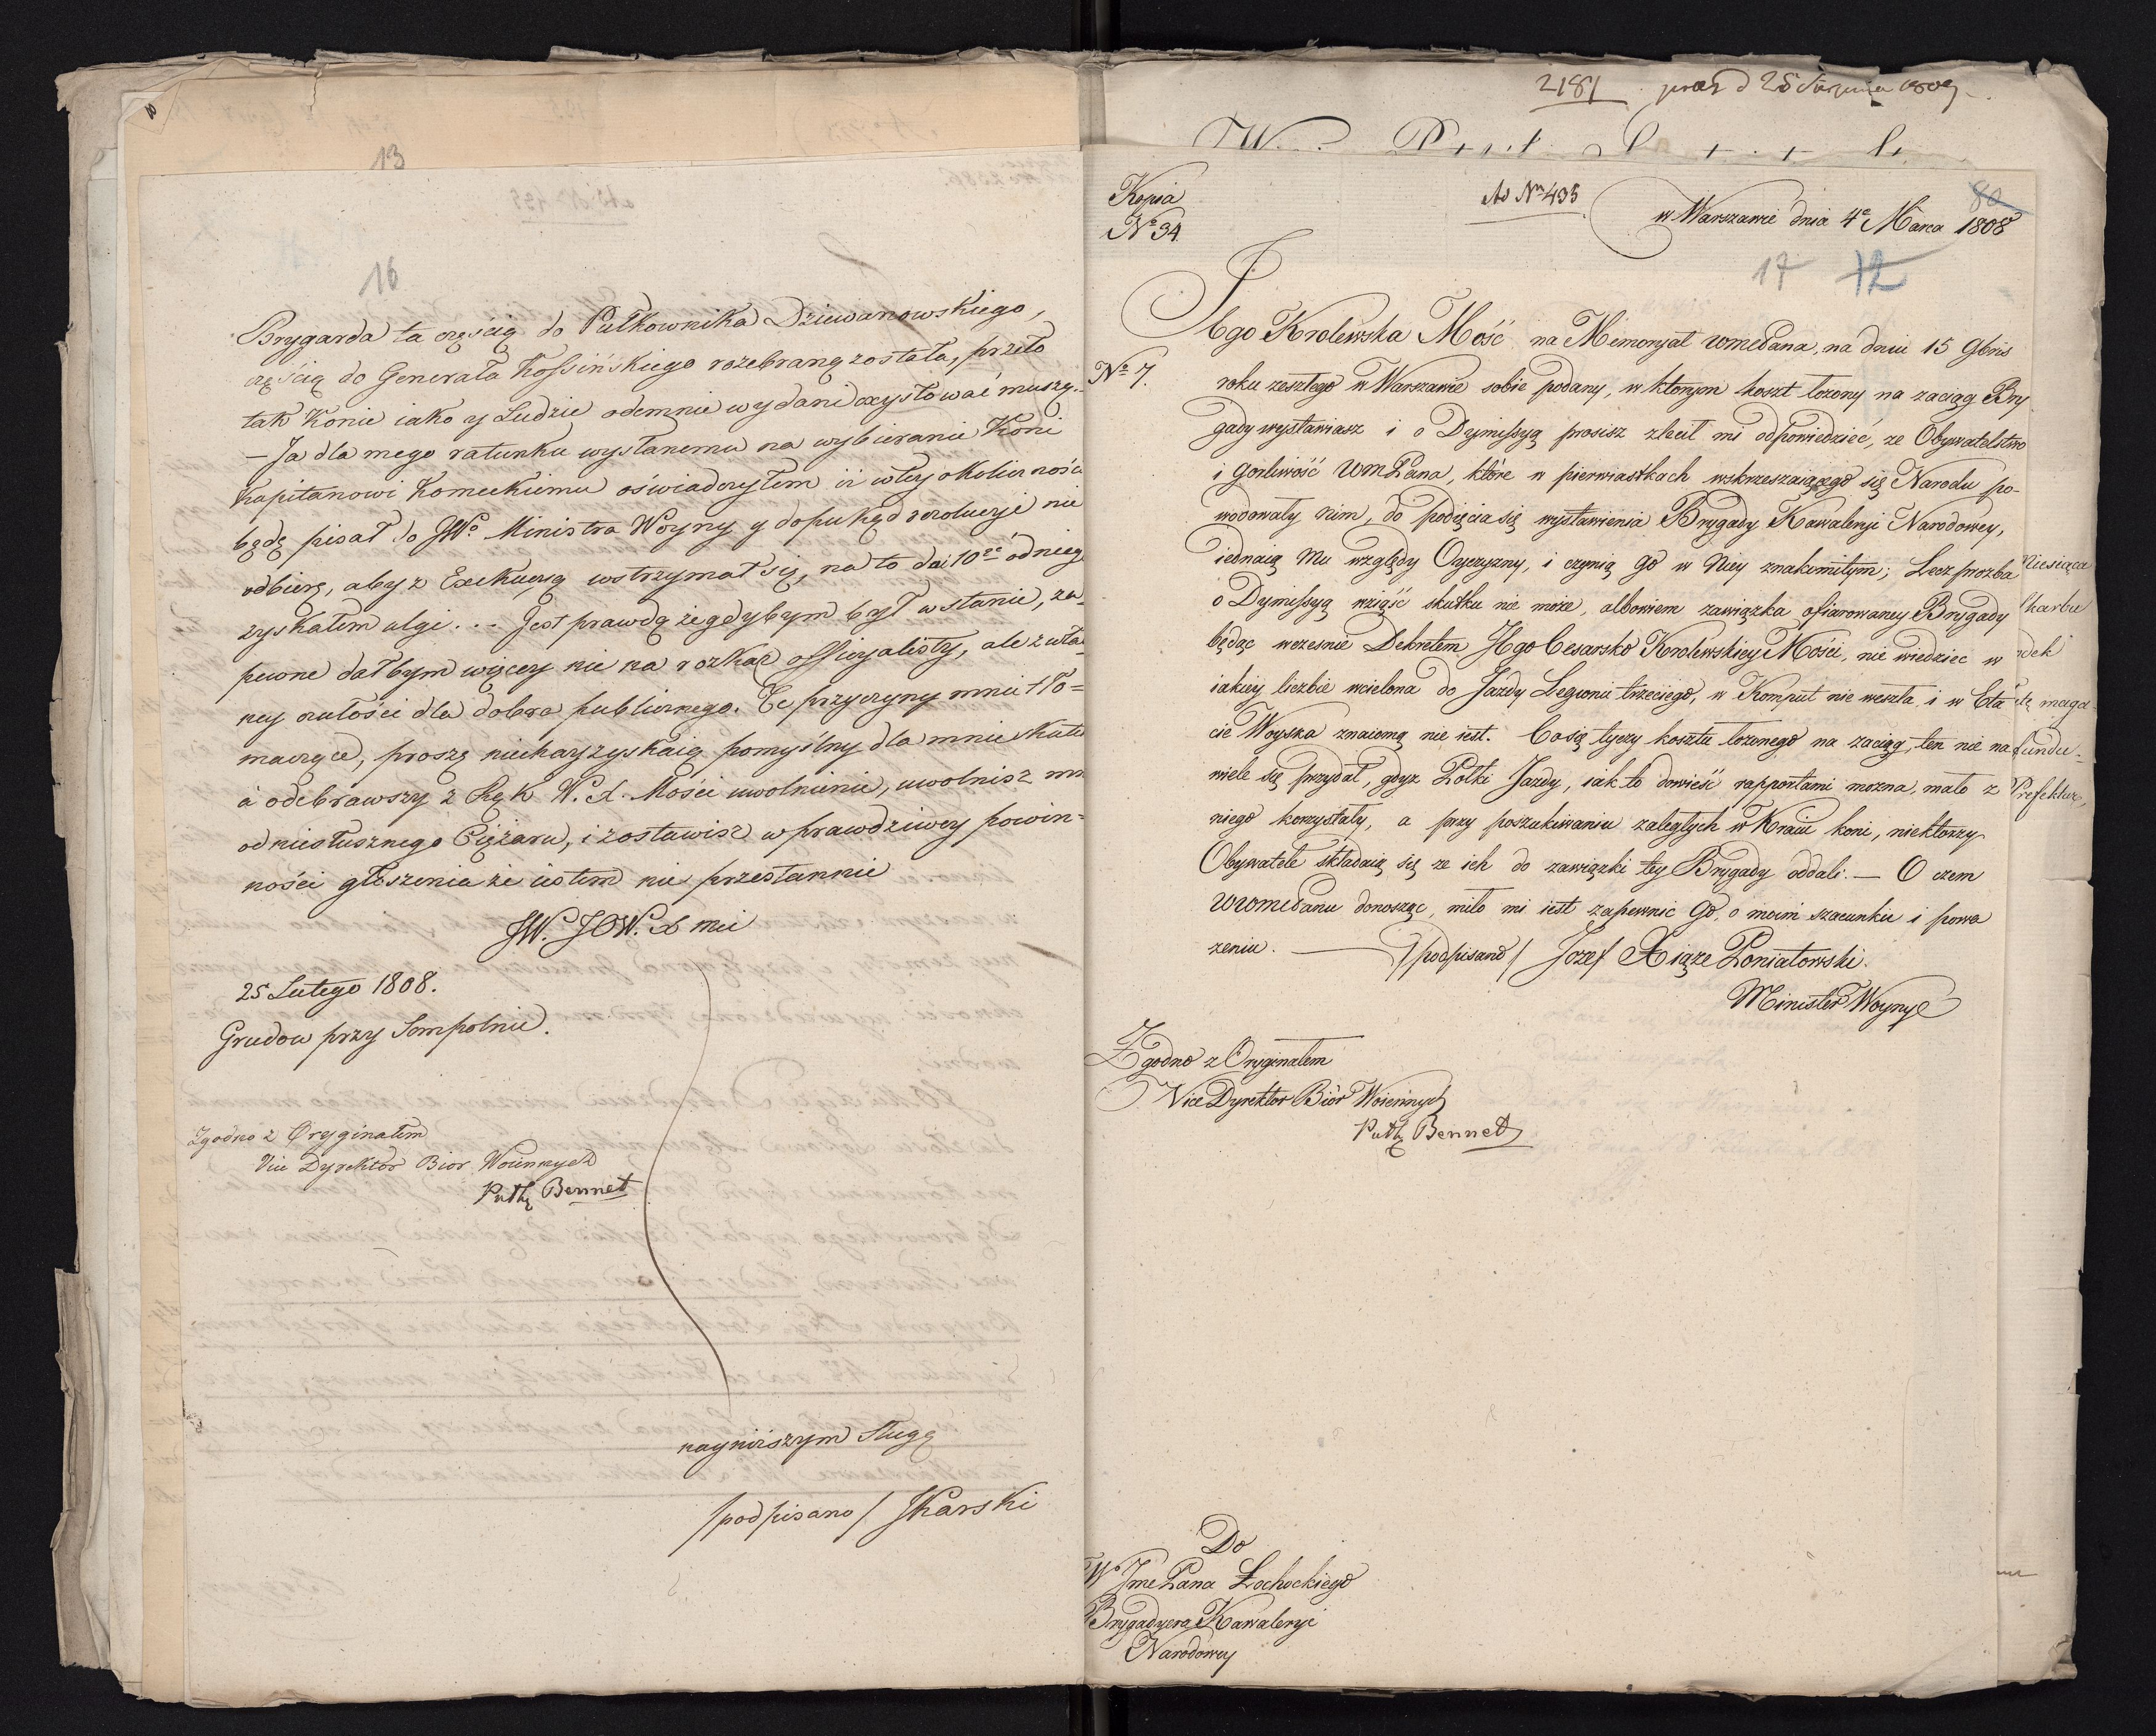 13
16
Brygarda ta częścią do Pułkownika Dziewanowskiego,
częścią do Generała Kossińskiego rozebraną została, przeto
tak Konie iako y Ludzie odemnie wydani exystować muszą.
– Ja dla mego ratunku wysłanemu na wybieranie Koni
Kapitanowi Komeckiemu oświadczyłem iż w tey okoliczności
będę pisał do JWo Ministra Woyny y dopukąd rezolucyi nie
odbiorę, aby z Exekucyą wstrzymał się, na to dni 10ęć od niego
zyskałem ulgi... Jest prawdą że gdybym był w stanie, za-
pewne dałbym więcey nie na rozkaz officyalisty, ale z wła-
ney czułości dla dobra publicznego. Te przyczyny mnie tło=
maczące, proszę niechay zyskaią pomyślny dla mnie skutek
á odebrawszy z Rąk W. X. Mości uwolnienie, uwolnisz mnie
od niesłusznego Ciężaru, i zostawisz w prawdziwey powin=
ności głoszenia że iestem nie przestannie
JW. JOW. X mci
25 Lutego 1808.
Grudow przy Sompolnie.
Zgodno z Oryginałem
Vice Dyrektor Bior Woiennych
Pułk Bennet
nayniższym sługą
/podpisano/ JKarski
2181 praes d 25 Sierpnia 1809
Kopia
No 34.
Ad Nm 435
80
w Warszawie dnia 4o Marca 1808
17 12
Jego Krolewska Mość na Memoryał WmcPana, na dniu 15 9bris
No 7.
roku zeszłego w Warszawie sobie podany, w ktorym koszt łożony na zaciąg Bry
gady wystawiasz i o Dymissyą prosisz zlecił mi odpowiedzieć, ze Obywatelstwo
i gorliwość WmPana, które w pierwiastkach wskrzeszaiącego się Narodu po-
wodowały nim, do podięcia się wystawienia Brygady Kawaleryi Narodowey,
iednaią Mu względy Oyczyzny, i czynią go w Niey znakomitym; Lecz prozba
o Dymissyą wziąść skutku nie może, albowiem zawiązka ofiarowaney Brygady
będąc wczesnie Dekretem Jego Cesarsko Krolewskiey Mości, nie wiedziec w
iakiey liczbie wcielona do Jazdy Legionu trzeciego, w Komput nie weszła i w Eta
cie Woyska znaiomą nie iest. Co się tyczy kosztu łożonego na zaciąg, ten nie na
wiele się przydał, gdyż Półki Jazdy, iak to dowieść rapportami mozna, mało z
niego korzystały, a przy poszukiwaniu zaległych w Kraiu koni, niektorzy
Obywatele składaią się ze ich do zawiązki tey Brygady oddali. — O czem
WWmcPanu donosząc, miło mi iest zapewnic Go o moim szacunku i powa
zeniu. — /podpisano/ Jozef Xiąze Poniatowski.
Minister Woyny
Zgodno z Oryginałem
Vice Dyrektor Biór Woiennych
Pułk Bennet
Do
Wo JmcPana Łochockiego
Brygadyera Kawaleryi
Narodowey
Miesiąca
Skarbu
maga-
fundu-
Prefektur,